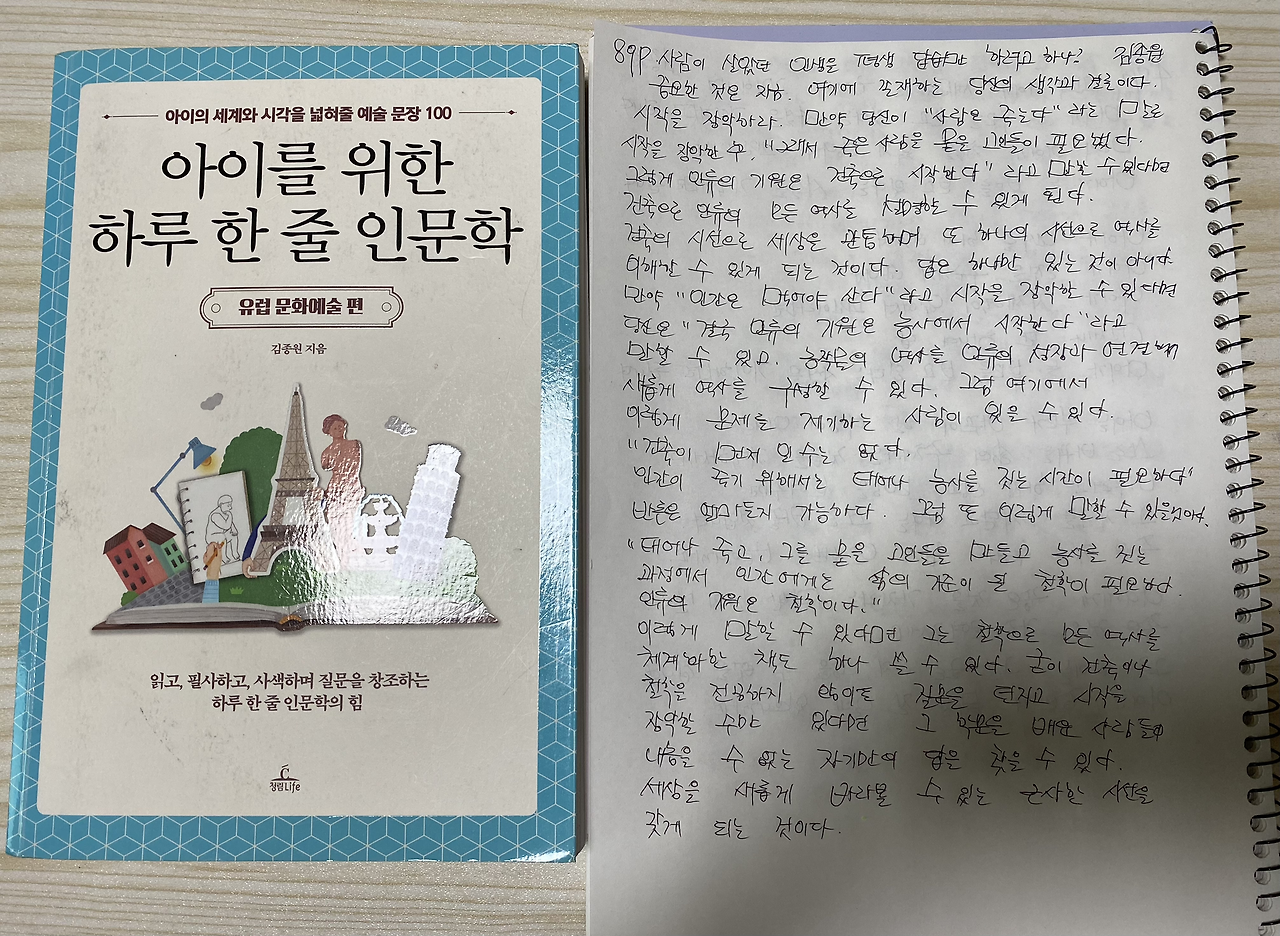 아이의 세계와 시각을 넓혀줄 예술 문장 100
아이를 위한
하루 한 줄 인문학
유럽 문화예술 편
김종원 지음
읽고, 필사하고, 사색하며 질문을 창조하는
하루 한 줄 인문학의 힘
청림Life
89P. 사람이 살았던 인생을 평생 답습만 하려고 하나? 김종원
중요한 것은 지금, 여기에 존재하는 당신의 생각과 결론이다.
시작을 장악하라. 만약 당신이 "사람은 죽는다" 라는 말로
시작을 장악한 후, "그래서 죽은 사람을 묻을 고인돌이 필요했다.
그렇게 인류의 기원은 건축으로 시작한다" 라고 말할 수 있다면
건축으로 인류의 모든 역사를 설명할 수 있게 된다.
건축의 시선으로 세상을 관통하며 또 하나의 시선으로 역사를
이해할 수 있게 되는 것이다. 답은 하나만 있는 것이 아니다.
만약 "인간은 먹어야 산다" 라고 시작을 장악할 수 있다면
당신은 "결국 인류의 기원은 농사에서 시작한다" 라고
말할 수 있고, 농작물의 역사를 인류의 성장과 연결해
새롭게 역사를 구성할 수 있다. 그럼 여기에서
이렇게 문제를 제기하는 사람이 있을 수 있다.
"건축이 먼저 일 수는 없다.
인간이 죽기 위해서는 태어나 농사를 짓는 시간이 필요하다"
반론은 얼마든지 가능하다. 그럼 또 이렇게 말할 수 있을 것이다.
"태어나 죽고, 그를 묻을 고인돌을 만들고 농사를 짓는
과정에서 인간에게는 삶의 기준이 될 철학이 필요하다.
인류의 기원은 철학이다."
이렇게 말할 수 있다면 그는 철학으로 모든 역사를
체계화한 책도 하나 쓸 수 있다. 굳이 건축이나
철학을 전공하지 않아도 질문을 던지고 시작을
장악할 수만 있다면 그 학문을 배운 사람들이
내놓을 수 없는 자기만의 답을 찾을 수 있다.
세상을 새롭게 바라볼 수 있는 근사한 시선을
갖게 되는 것이다.